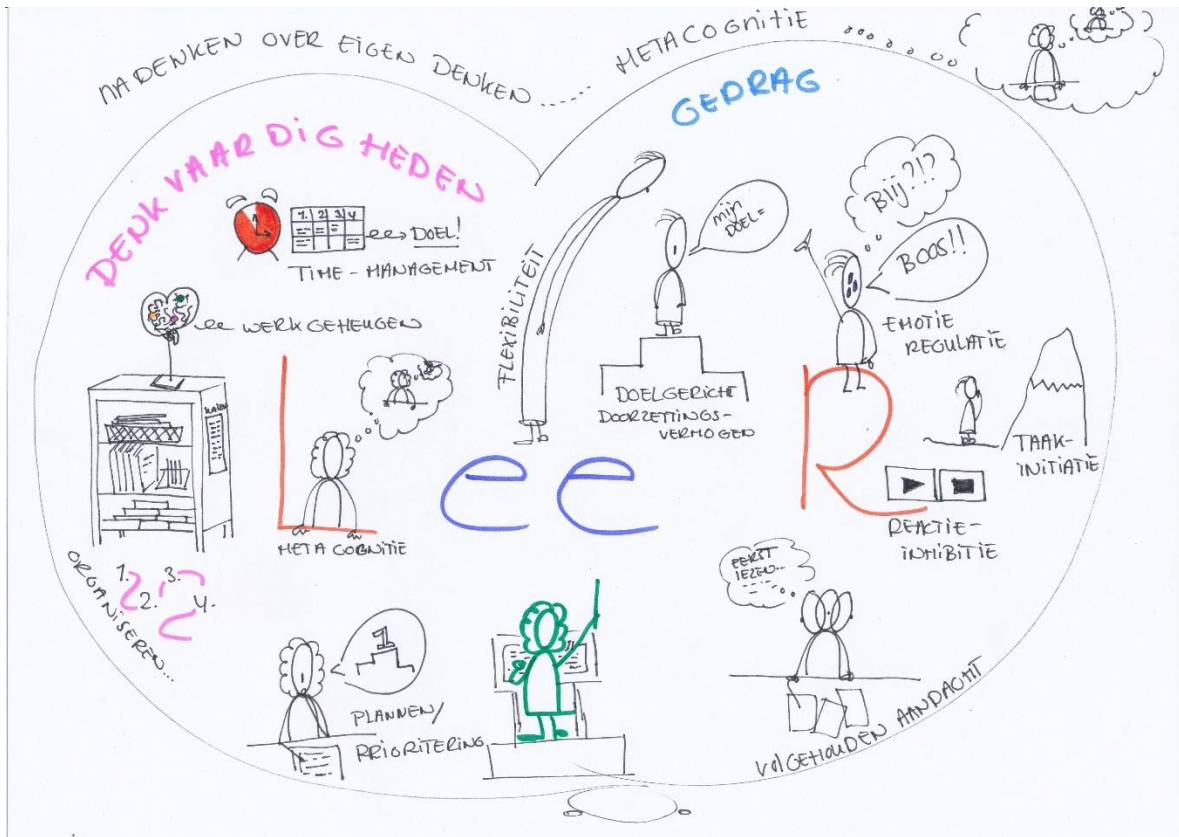 NADENKEN OVER EIGEN DENKEN......
METACOGNITIE
DENKVAARDIGHEDEN
GEDRAG
1. 2 3. 4
DOEL!
TIME-MANAGEMENT
WERKGEHEUGEN
ORGANISEREN...
1. 3.
2. 4.
META COGNITIE
1
PLANNEN/
PRIORITERING
LeeR
FLEXIBILITEIT
mijn
DOEL=
DOELGERICHT
DOORZETTINGS-
VERMOGEN
Blij?!?
BOOS!!
EMOTIE
REGULATIE
TAAK-
INITIATIE
REACTIE-
INHIBITIE
EERST
LEZEN...
VOLGEHOUDEN AANDACHT